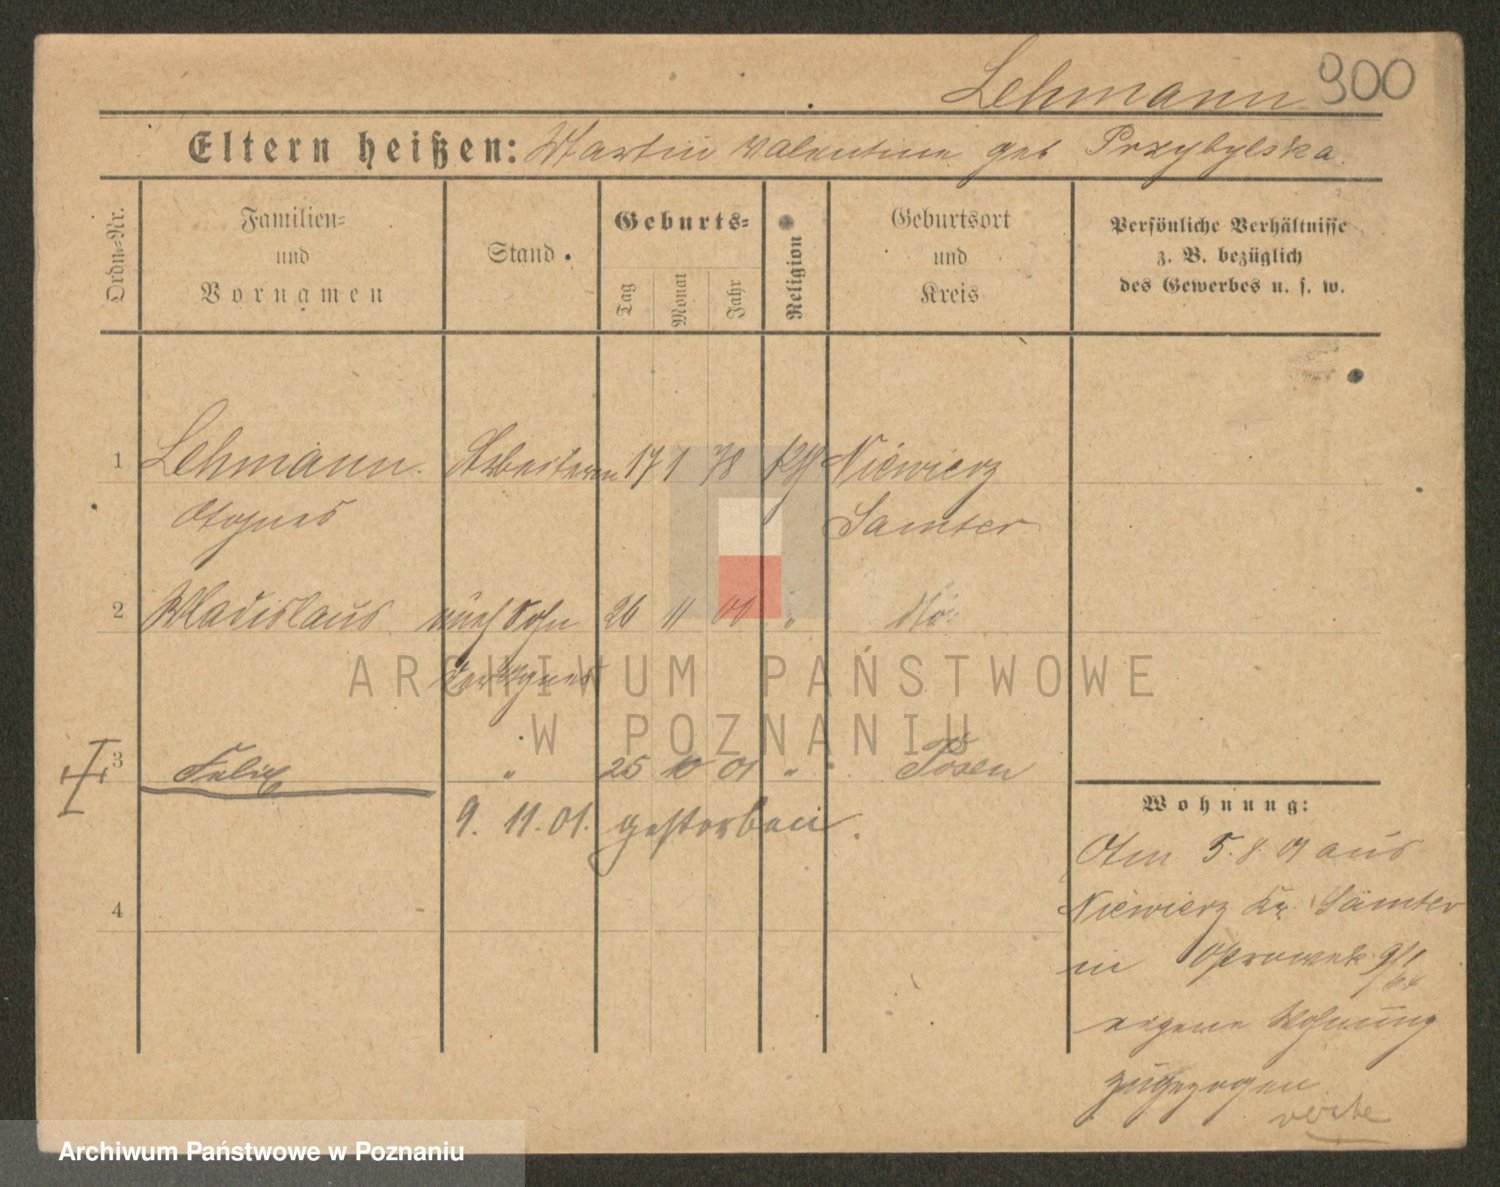 Lehmann 900
Eltern heißen: Martin Valentine geb Przybylska.
Ordn=Nr.
Familien=
und
Vornamen
Stand
Geburts=
Tag
Monat
Jahr
Religion
Geburtsort
und
Kreis
Persönliche Verhältnisse
z. B. bezüglich
des Gewerbes u. s. w.
1 Lehmann Arbeiterin 17 1 78 kth Niewierz
Agnes Samter
2 Wladislaus unehl Sohn 26 11 01 " do
der Agnes
ARCHIWUM PAŃSTWOWE
W POZNANIU
3 Felix " 25 10 01 " Posen
9. 11. 01. gestorben.
4
Wohnung:
Am 5. 8. 01 aus
Niewierz Kr. Samter
in
eigene Wohnung
zugezogen
Archiwum Państwowe w Poznaniu